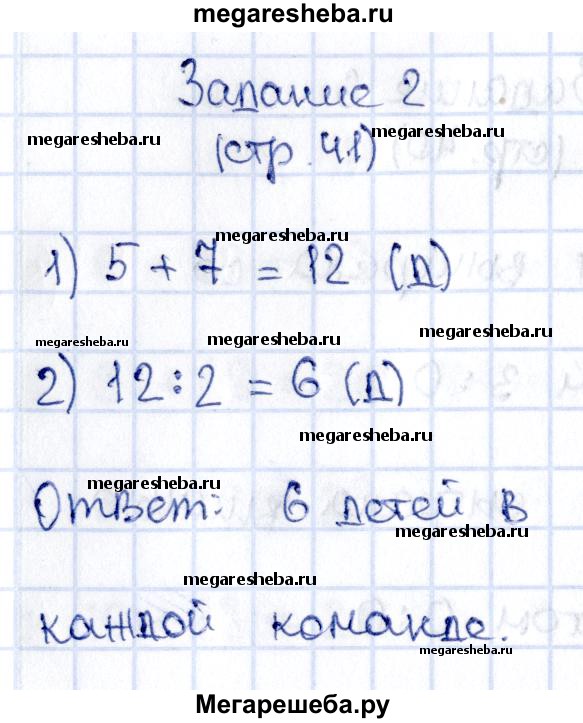 megaresheba.ru
Задание 2
megaresheba.ru
megaresheba.ru
(стр. 41)
megaresheba.ru
1) 5 + 7 = 12 (д)
megaresheba.ru
megaresheba.ru
2) 12 : 2 = 6 (д)
megaresheba.ru
megaresheba.ru
Ответ: 6 детей в
megaresheba.ru
megaresheba.ru
каждой команде.
megaresheba.ru
Мегарешеба.ру